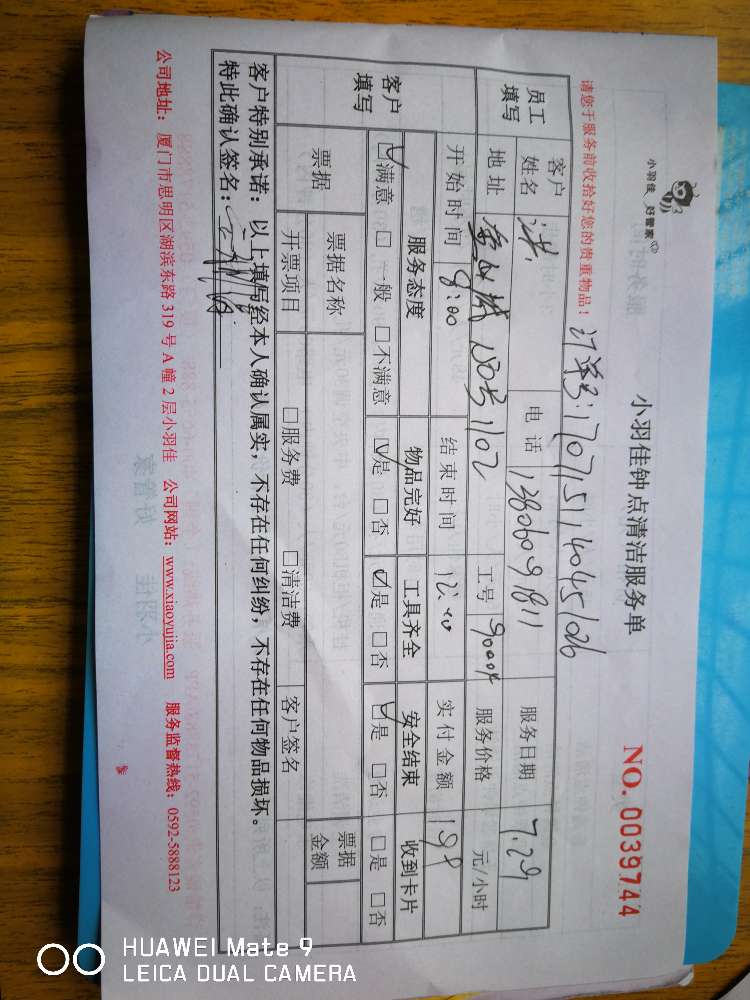 小羽佳 好管家
小羽佳钟点清洁服务单
NO. 0039744
请您于服务前收拾好您的贵重物品!
订单号:170715114045106
员工填写
客户姓名 洪 电话 13806091811 服务日期 7.29
地址 1805 1102 工号 90004 服务价格 元/小时
开始时间 8:00 结束时间 12:00 实付金额 198
客户填写
服务态度 物品完好 工具齐全 安全结束 收到卡片
☑满意 □一般 □不满意 ☑是 □否 ☑是 □否 ☑是 □否 □是 □否
票据 票据名称 票据金额
开票项目 □服务费 □清洁费 客户签名
客户特别承诺: 以上填写经本人确认属实,不存在任何纠纷,不存在任何物品损坏。
特此确认签名:
公司地址: 厦门市思明区湖滨东路 319 号 A 幢 2 层小羽佳 公司网站: www.xiaoyujia.com 服务监督热线: 0592-5888123
HUAWEI Mate 9
LEICA DUAL CAMERA